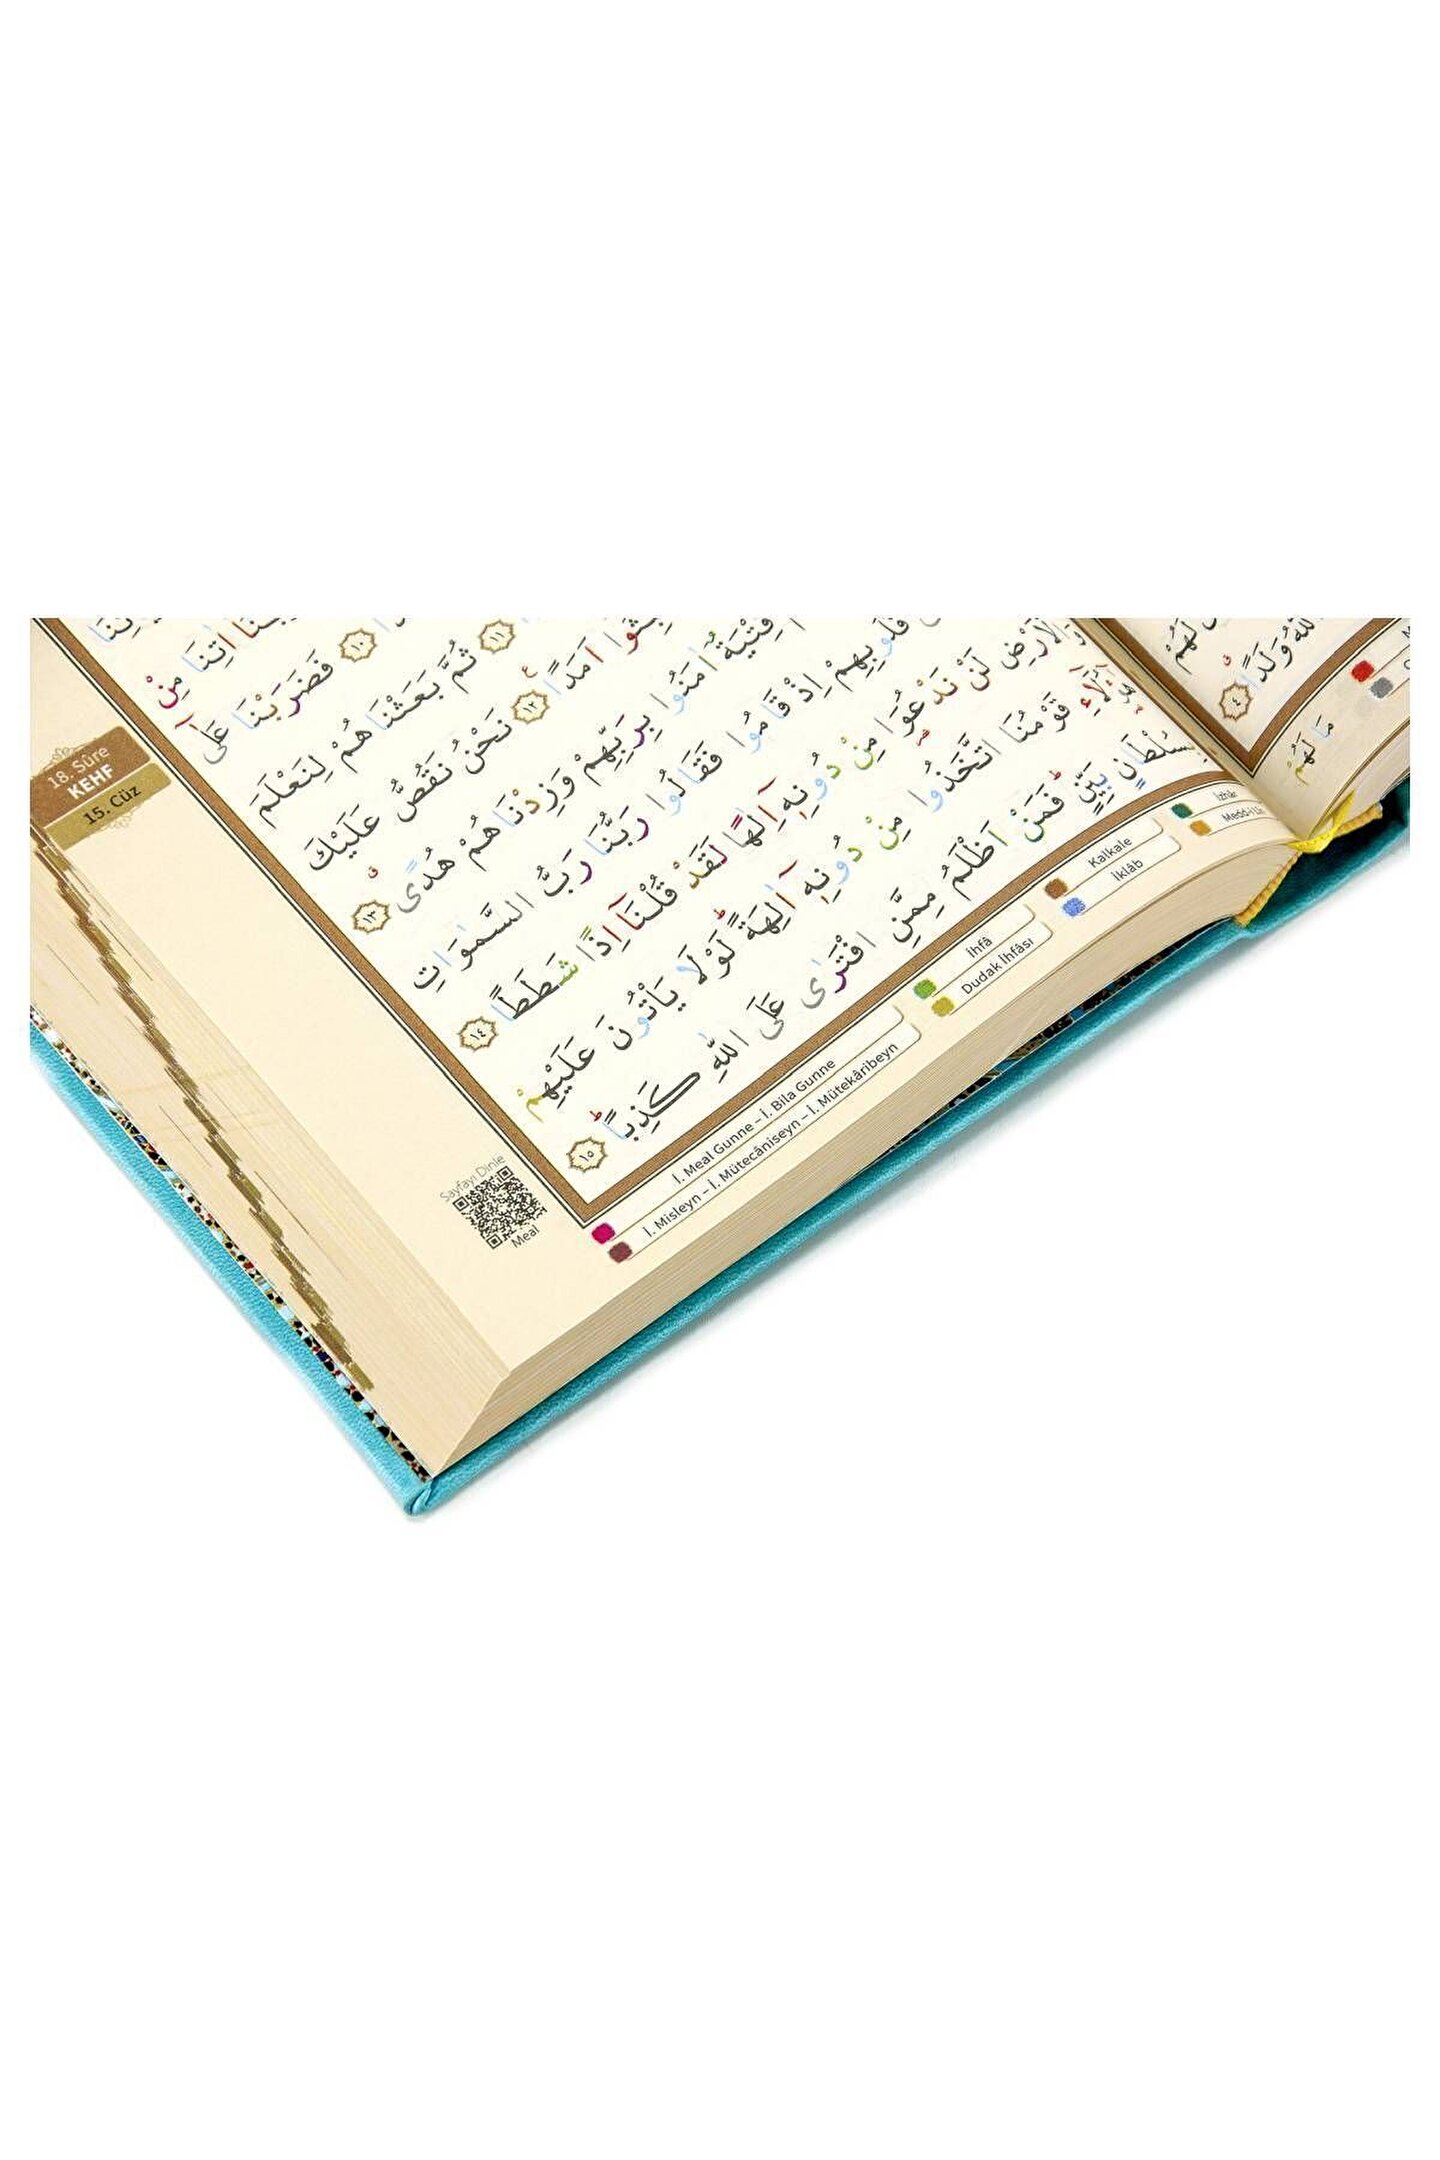 لَهُمْ
اللّٰهُ وَلَدًا ٤
مَا لَهُمْ
اٰتِنَا مِنْ
١٠ فَضَرَبْنَا عَلٰٓى
١١ ثُمَّ بَعَثْنَاهُمْ لِنَعْلَمَ
اَمَدًا ١٢ نَحْنُ نَقُصُّ عَلَيْكَ
فِتْيَةٌ اٰمَنُوا بِرَبِّهِمْ وَزِدْنَاهُمْ هُدًى ١٣
قُلُوبِهِمْ اِذْ قَامُوا فَقَالُوا رَبُّنَا رَبُّ السَّمٰوَاتِ
وَالْاَرْضِ لَنْ نَدْعُوَا مِنْ دُونِه۪ٓ اِلٰهًا لَقَدْ قُلْنَٓا اِذًا شَطَطًا ١٤
هٰٓؤُ۬لَٓاءِ قَوْمُنَا اتَّخَذُوا مِنْ دُونِه۪ٓ اٰلِهَةً لَوْلَا يَأْتُونَ عَلَيْهِمْ
بِسُلْطَانٍ بَيِّنٍ فَمَنْ اَظْلَمُ مِمَّنِ افْتَرٰى عَلَى اللّٰهِ كَذِبًا ١٥
18. Sûre
KEHF
15. Cüz
Sayfayı Dinle
Meal
İ. Meal Gunne – İ. Bila Gunne
İ. Misleyn – İ. Mütecâniseyn – İ. Mütekâribeyn
İhfâ
Dudak İhfâsı
Kalkale
İklâb
İzhâr